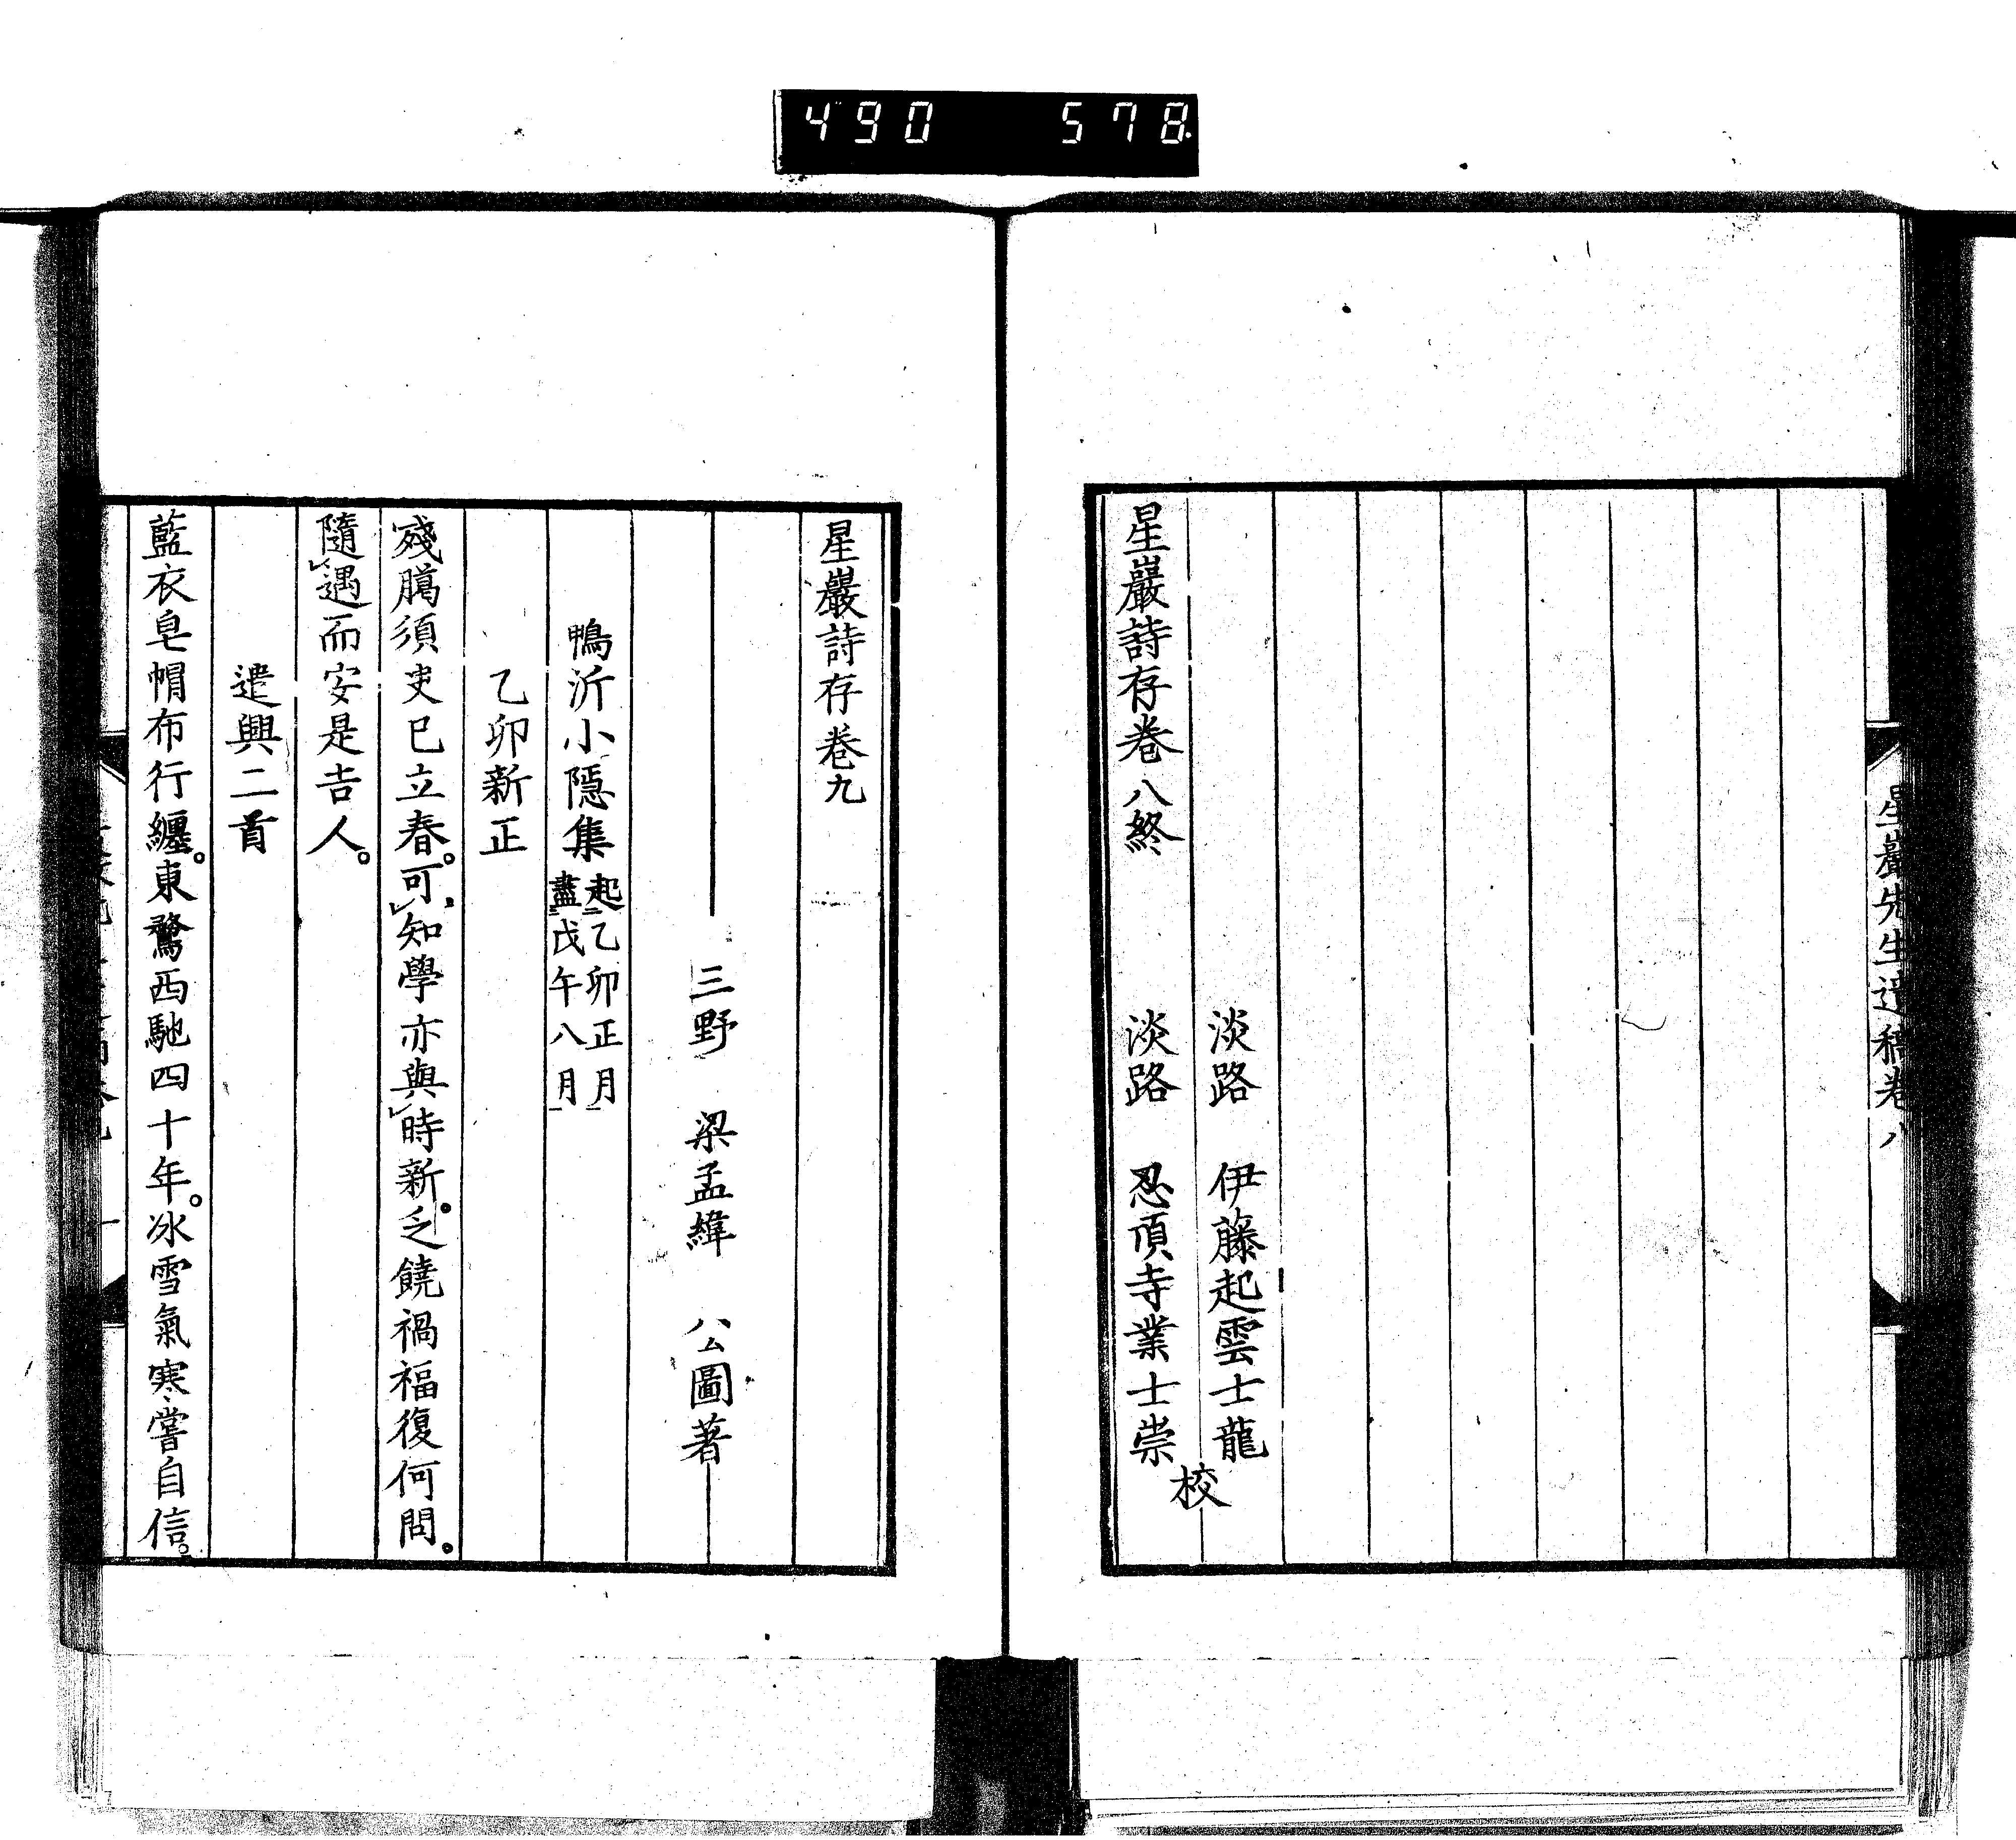 490 578
星巖先生遺稿卷八
淡路 伊藤起雲士龍
淡路 忍頂寺業士崇 校
星巖詩存卷八終
星巖詩存卷九
三野 梁孟緯 公圖著
鴨沂小隱集 起乙卯正月 盡戊午八月
乙卯新正
殘臈須臾已立春。可知學亦與時新。乏饒禍福復何問。
隨遇而安是吉人。
遣興二首
藍衣皂帽布行纏。東騖西馳四十年。冰雪氣寒嘗自信。